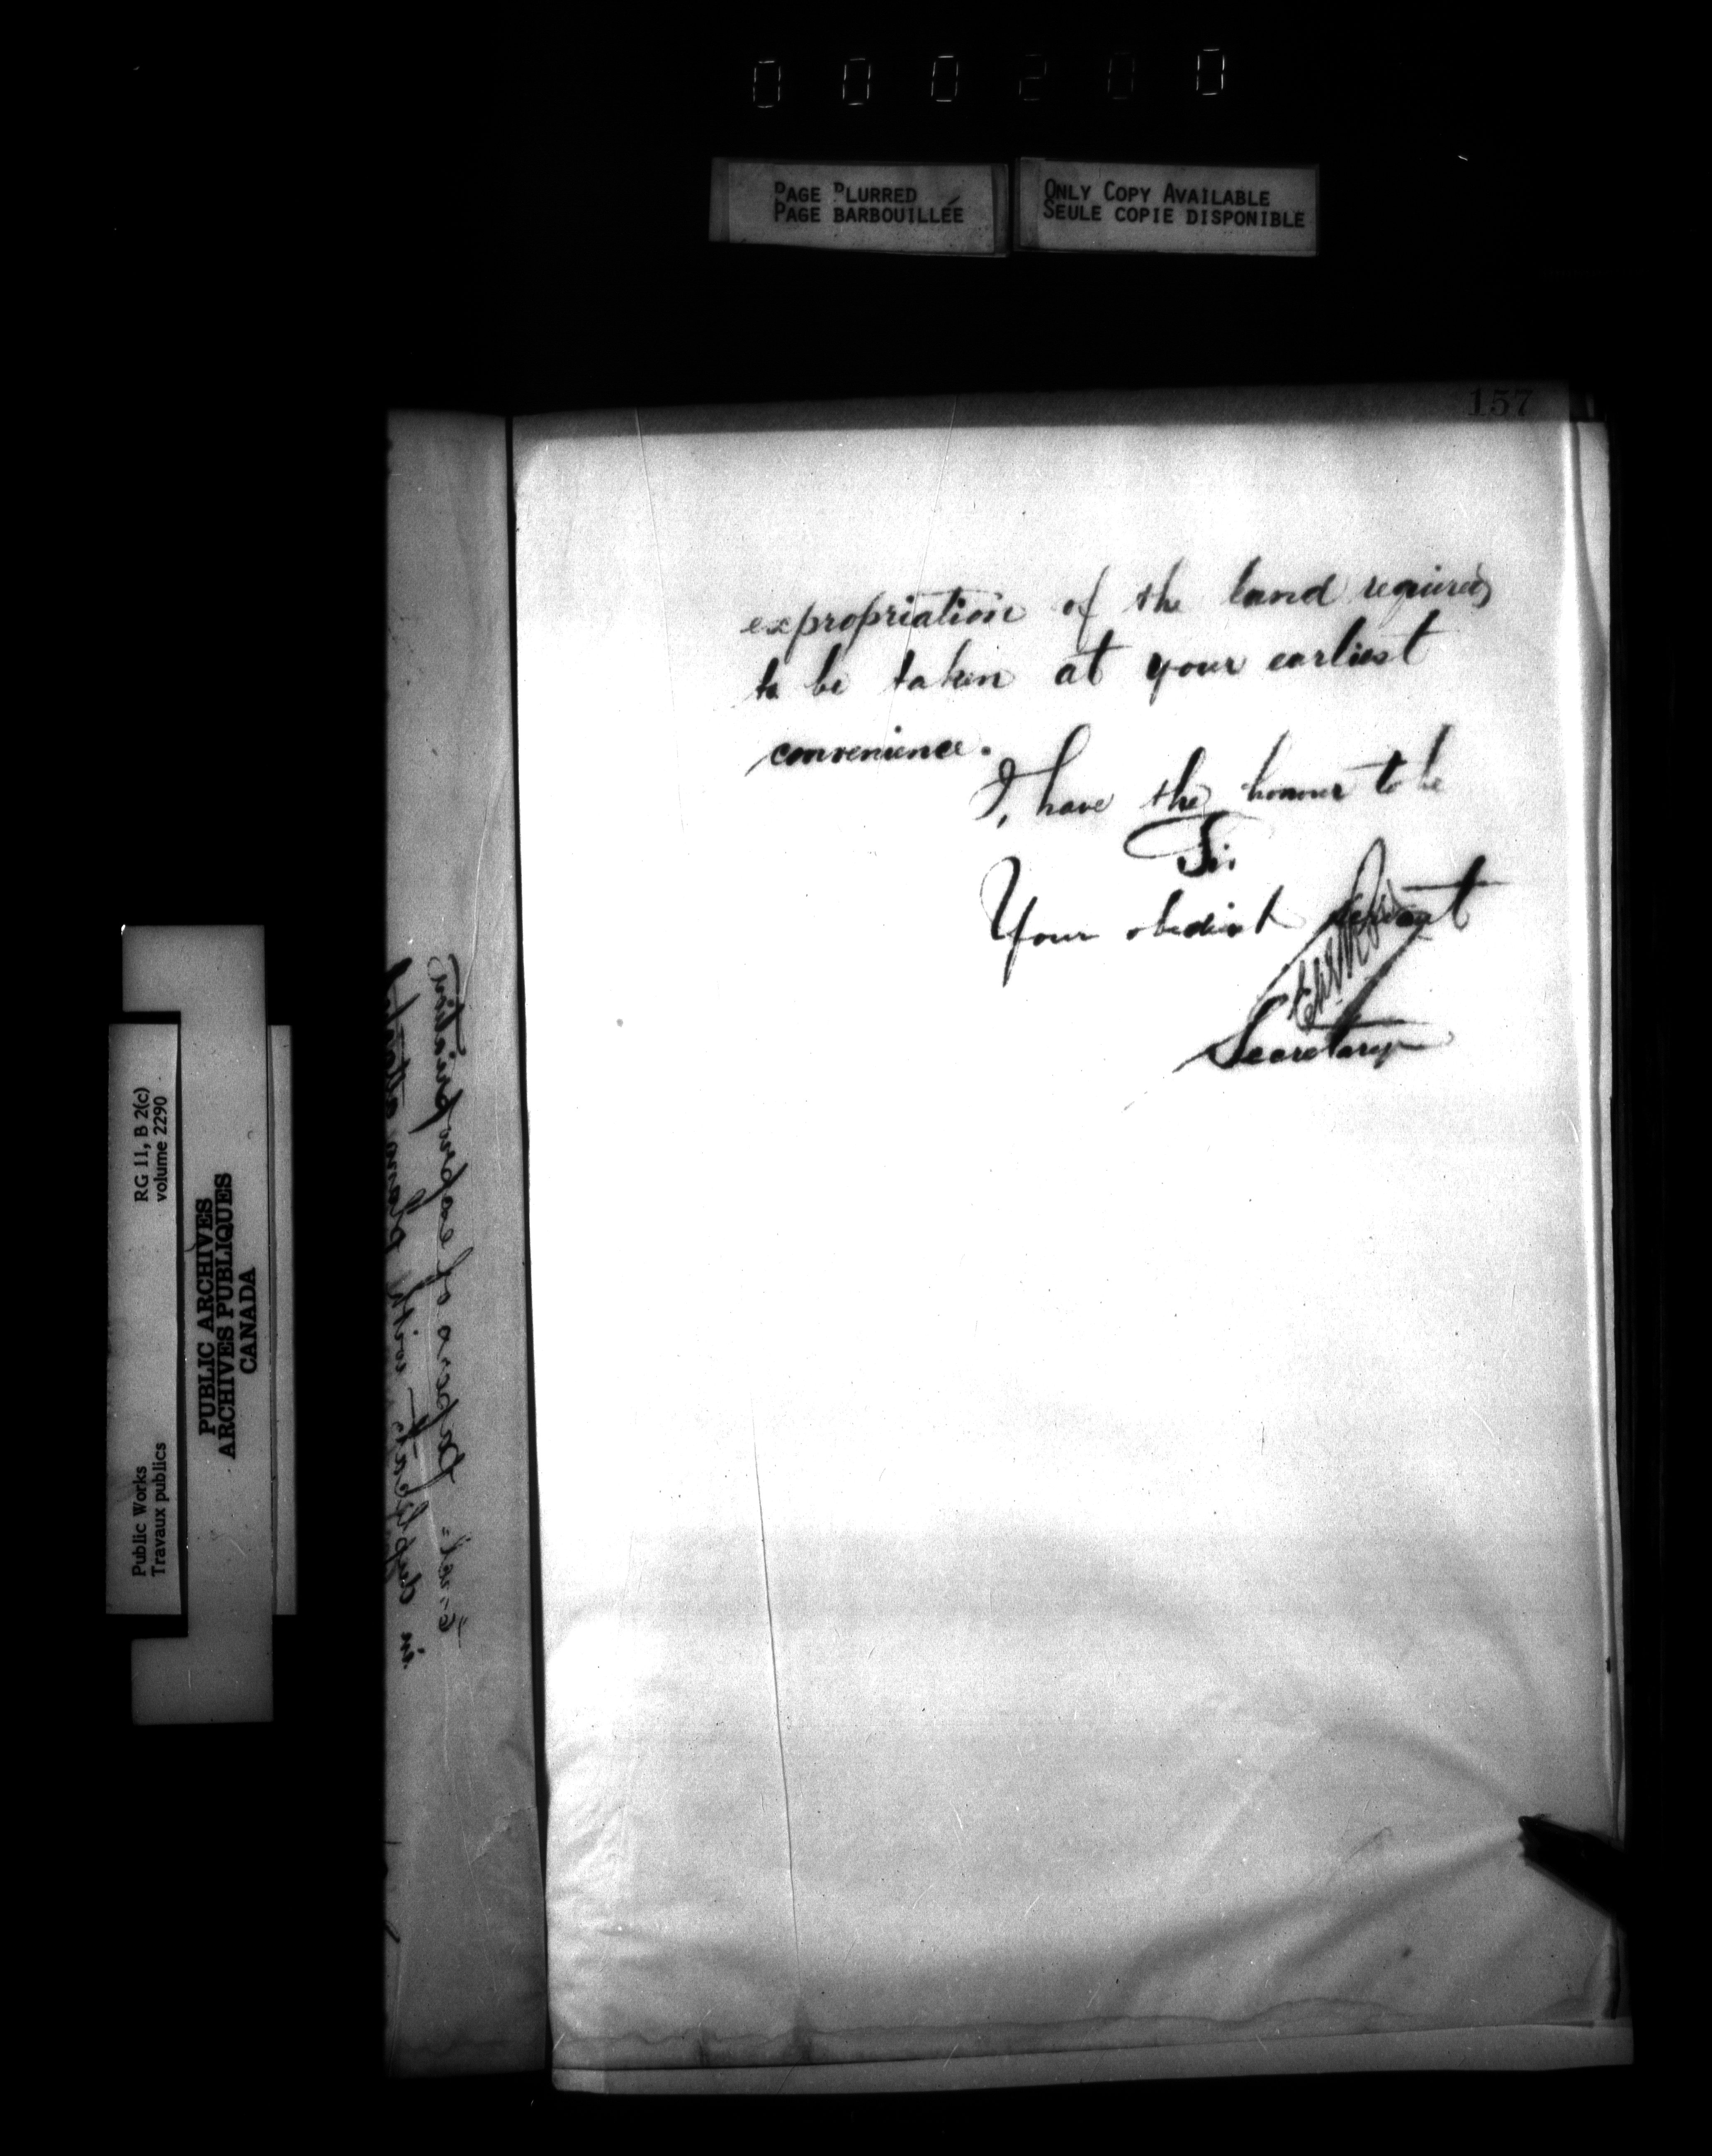 000200
PAGE BLURRED
PAGE BARBOUILLÉE
ONLY COPY AVAILABLE
SEULE COPIE DISPONIBLE
157
expropriation of the land required
to be taken at your earliest
convenience.
I, have the honour to be
Sir
Your obedient servant
Secretary
Public Works
Travaux publics
RG 11, B 2(c)
volume 2290
PUBLIC ARCHIVES
ARCHIVES PUBLIQUES
CANADA
in duplicate with
papers of expropriation